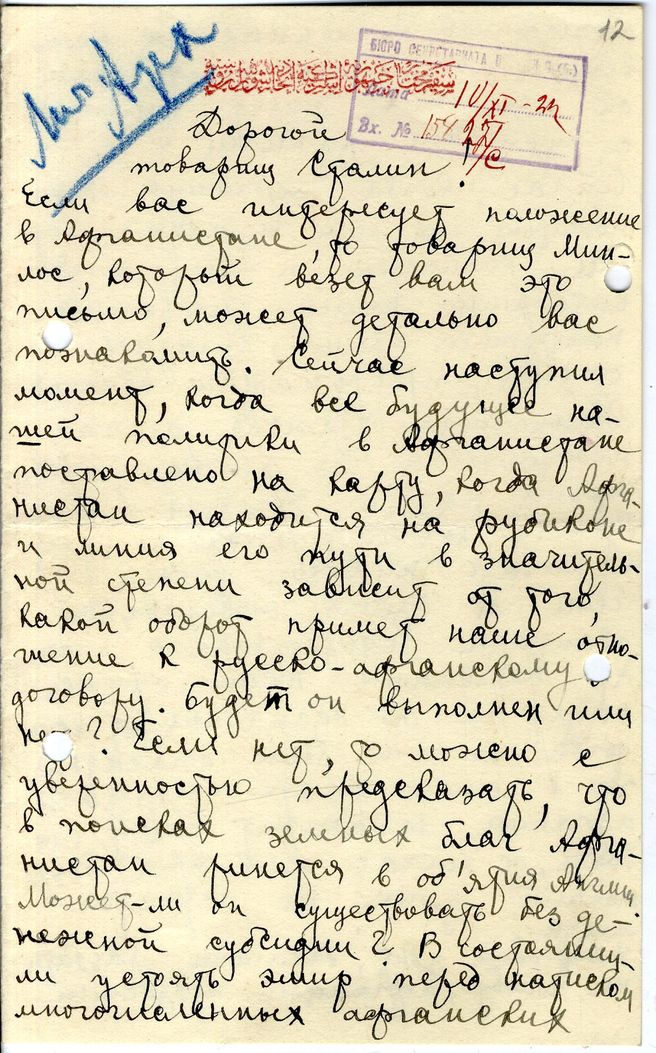 12
БЮРО СЕКРЕТАРИАТА
10/XI-22
Вх. №
Дорогой
товарищ Сталин!
Если вас интересует положение
в Афганистане, то товарищ Мин-
лос, который везет вам это
письмо, может детально вас
познакомить. Сейчас наступил
момент, когда все будущее на-
шей политики в Афганистане
поставлено на карту, когда Афга-
нистан находится на рубиконе
и линия его пути в значитель-
ной степени зависит от того,
какой оборот примет наше отно-
шение к русско-афганскому
договору. Будет он выполнен или
нет? Если нет, то можно с
уверенностью предсказать, что
в поисках земных благ Афга-
нистан ринется в об'ятия Англии.
Может-ли он существовать без де-
нежной субсидии? В состоянии-
ли устоять эмир перед натиском
многочисленных афганских